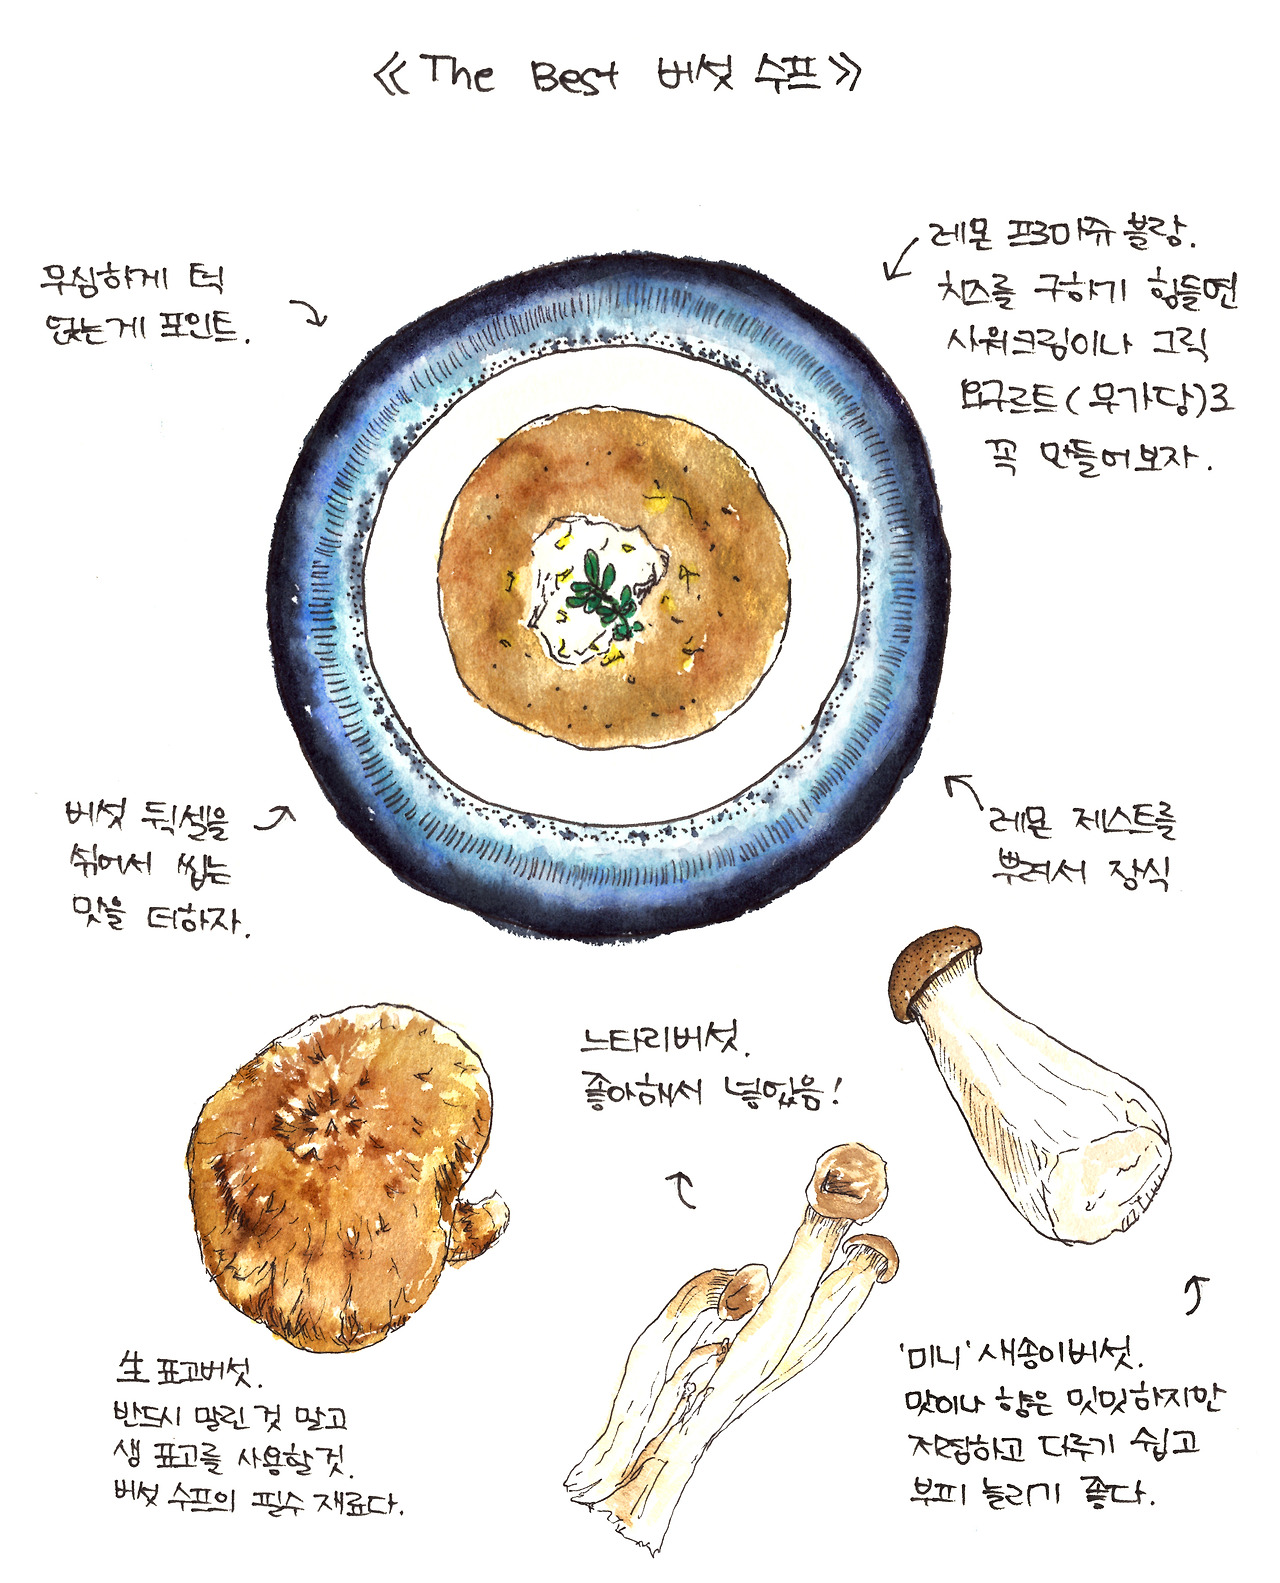 《The Best 버섯 수프》
무심하게 턱
얹는게 포인트.
레몬 프로마쥬 블랑.
치즈를 구하기 힘들면
사워크림이나 그릭
요구르트(무가당)로
꼭 만들어보자.
버섯 뒥셀을
섞어서 씹는
맛을 더하자.
레몬 제스트를
뿌려서 장식
느타리버섯.
좋아해서 넣었음!
生 표고버섯.
반드시 말린 것 말고
생 표고를 사용할 것.
버섯 수프의 필수 재료다.
'미니' 새송이버섯.
맛이나 향은 밋밋하지만
저렴하고 다루기 쉽고
부피 늘리기 좋다.